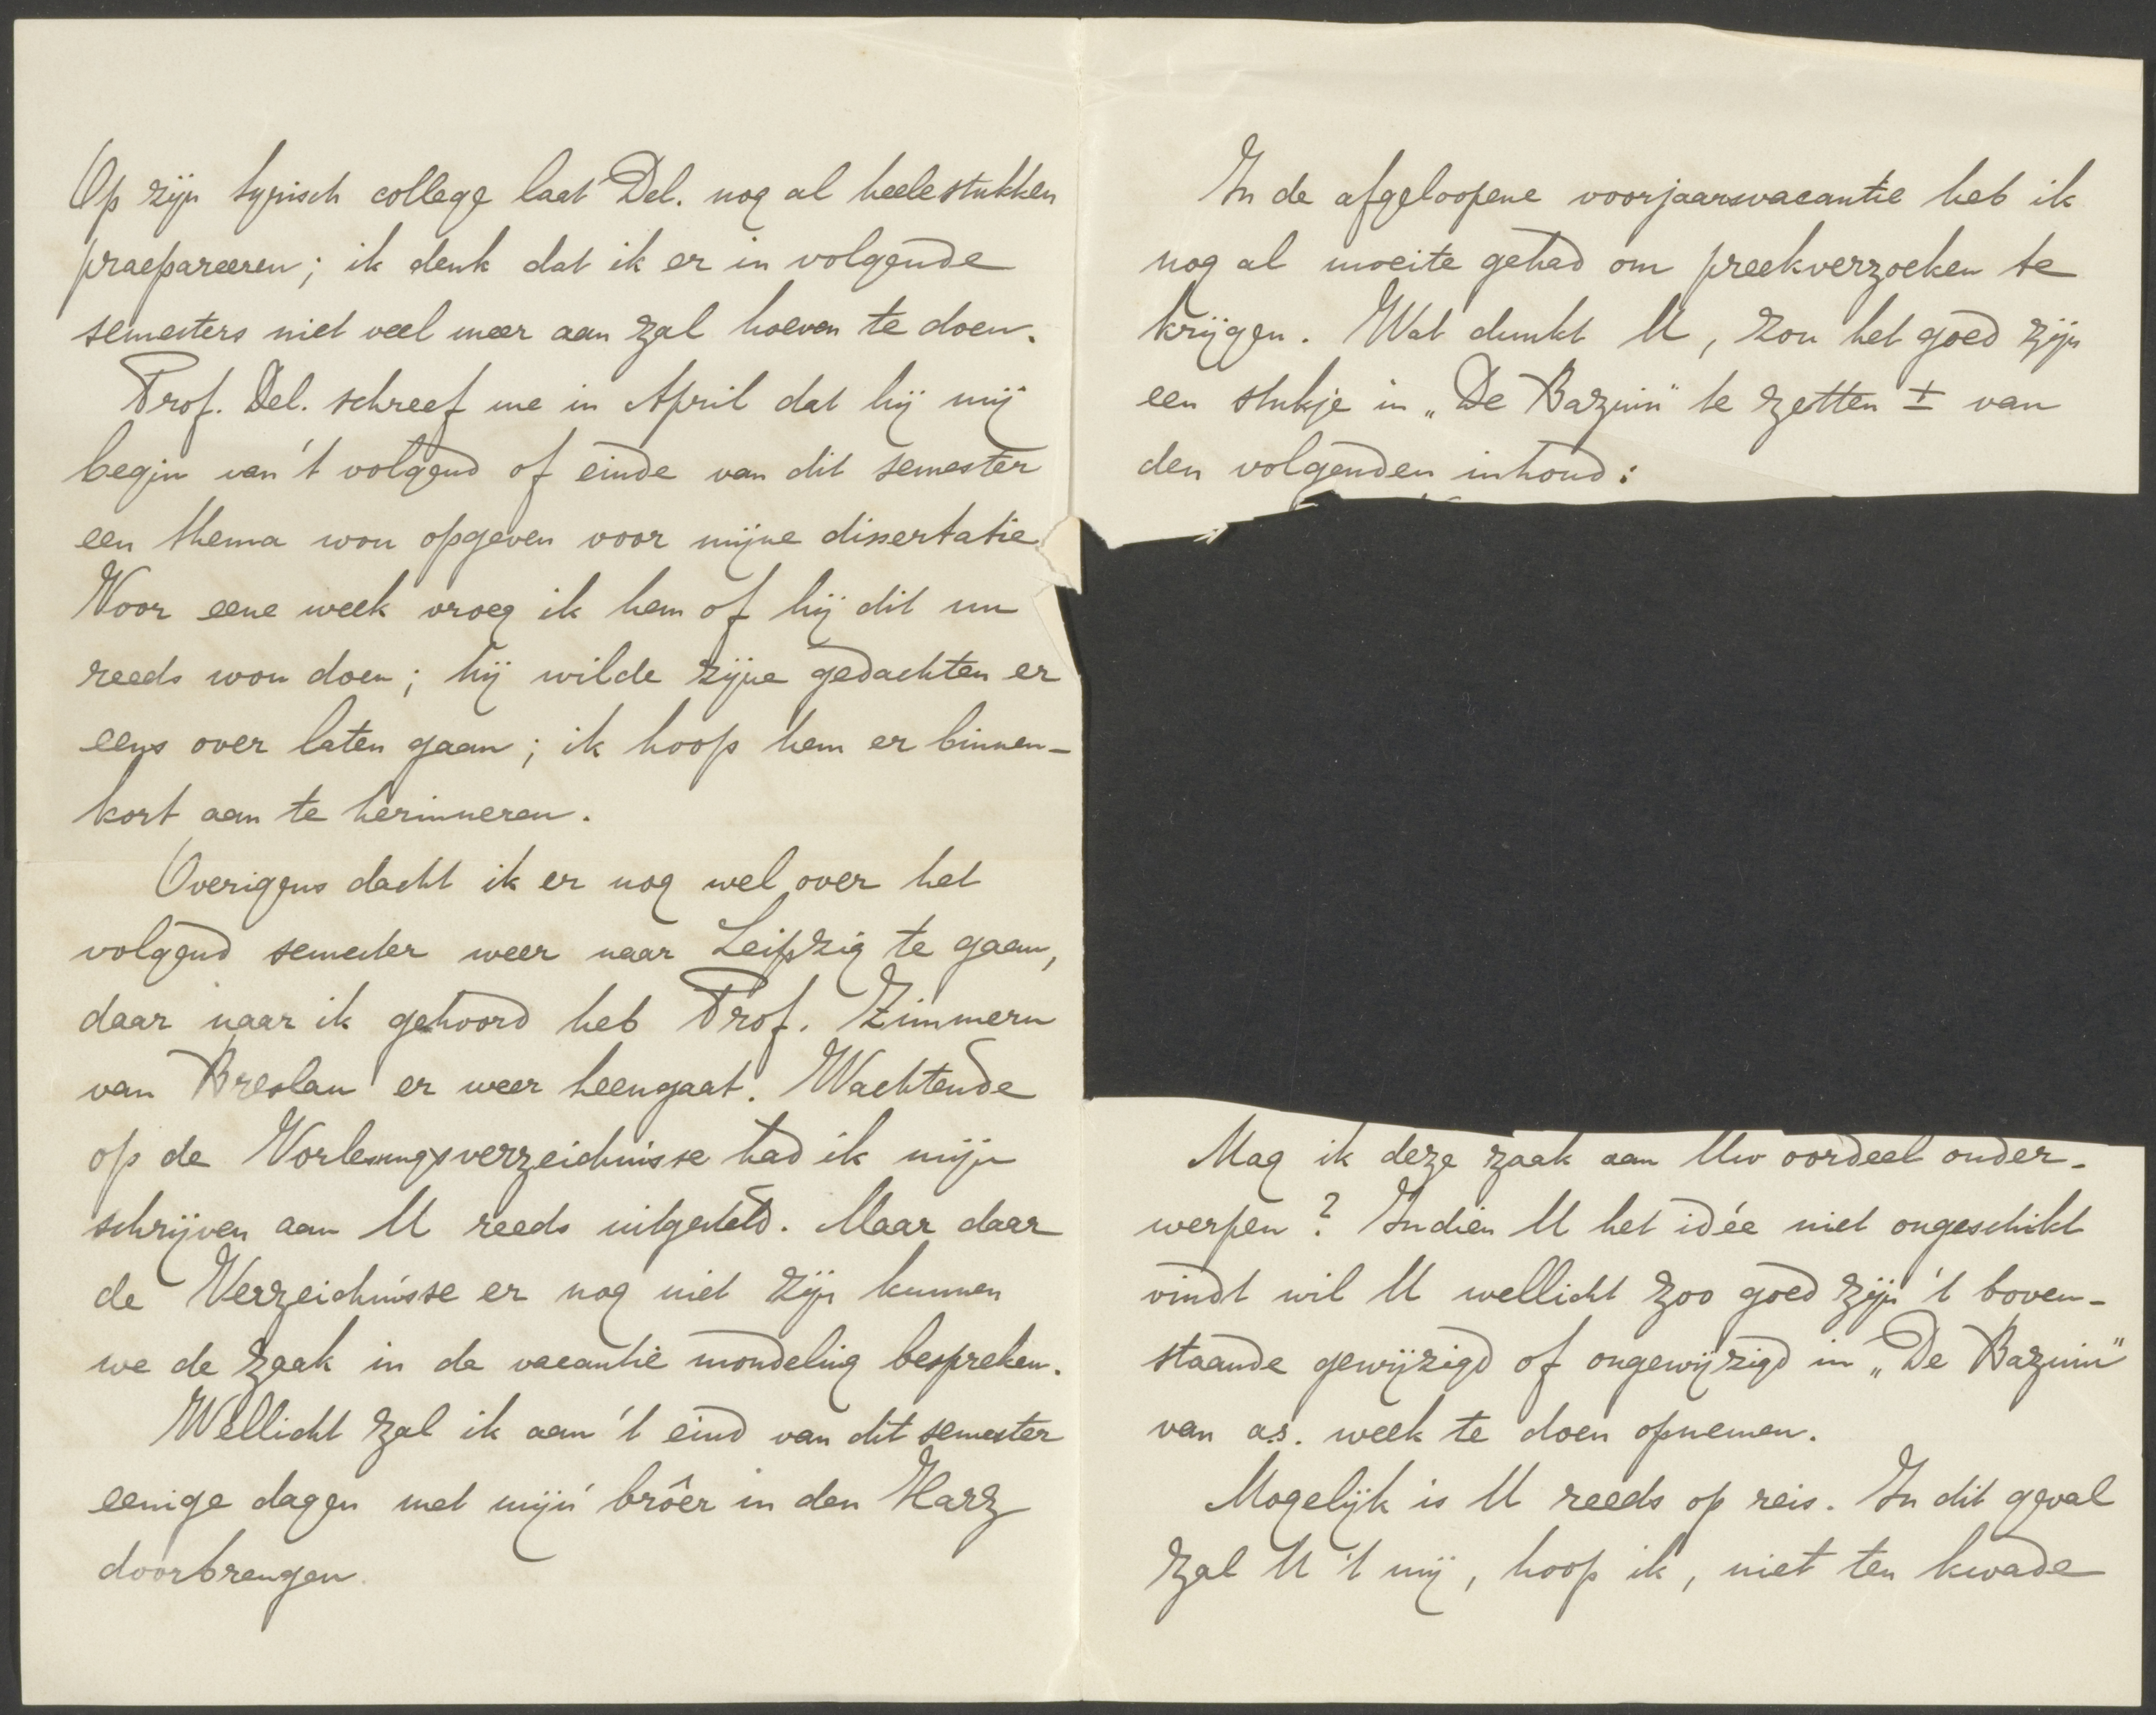 Op zijn syrisch college laat Del. nog al heele stukken
praepareeren; ik denk dat ik er in volgende
semesters niet veel meer aan zal hoeven te doen.
Prof. Del. schreef me in April dat hij mij
begin van 't volgend of einde van dit semester
een thema wou opgeven voor mijne dissertatie
Voor eene week vroeg ik hem of hij dit nu
reeds wou doen; hij wilde zijne gedachten er
eens over laten gaan; ik hoop hem er binnen-
kort aan te herinneren.
Overigens dacht ik er nog wel over het
volgend semester weer naar Leipzig te gaan,
daar naar ik gehoord heb Prof. Zimmern
van Breslau er weer heengaat. Wachtende
op de Vorlesungsverzeichnisse had ik mijn
schrijven aan U reeds uitgesteld. Maar daar
de Verzeichnisse er nog niet zijn kunnen
we de zaak in de vacantie mondeling bespreken.
Wellicht zal ik aan 't eind van dit semester
eenige dagen met mijn broêr in den Harz
doorbrengen.
In de afgeloopene voorjaarsvacantie heb ik
nog al moeite gehad om preekverzoeken te
krijgen. Wat dunkt U, zou het goed zijn
een stukje in „De Bazuin" te zetten ± van
den volgenden inhoud:
Mag ik deze zaak aan Uw oordeel onder-
werpen? Indien U het idée niet ongeschikt
vindt wil U wellicht zoo goed zijn 't boven-
staande gewijzigd of ongewijzigd in „De Bazuin"
van a.s. week te doen opnemen.
Mogelijk is U reeds op reis. In dit geval
zal U 't mij, hoop ik, niet ten kwade